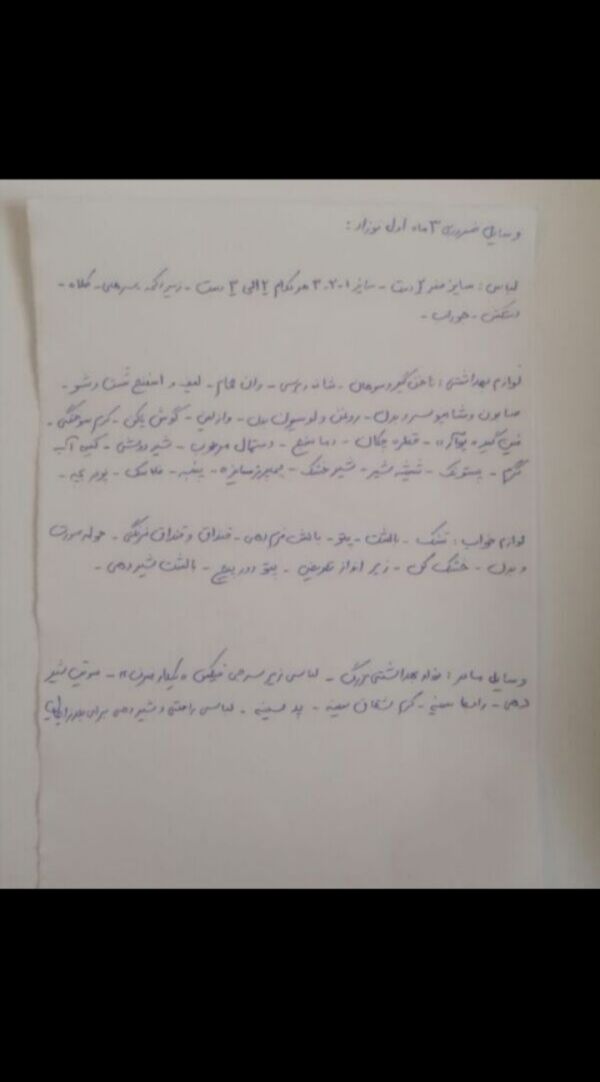 وسایل ضروری ۳ ماه اول نوزاد :
لباس : سایز صفر ۲ دست - سایز ۱-۲-۳ هرکدام ۲ الی ۳ دست - زیردکمه سرهمی - کلاه -
دستکش - جوراب -
لوازم بهداشتی : ناخن گیر و سوهان - شانه برس - وان حمام - لیف و اسفنج شست و شو -
صابون و شامپو سر و بدن - روغن و لوسیون بدن - وازلین - گوش پاکن - کرم سوختگی -
قطره چکان - دماسنج - دستمال مرطوب - شیردوش - کیسه آب
گرم - پستونک - شیشه شیر - شیر خشک - پنبه - پودر بچه -
لوازم خواب : تشک - بالشت - پتو - بالش فرم دهی - قنداق و قنداق فرنگی - حوله صورت
و بدن - خشک کن - زیر انداز تعویض - پتو دورپیچ - بالشت شیردهی -
وسایل مادر : نوار بهداشتی بزرگ - لباس زیر یکبار مصرف - سوتین شیر
دهی - رابط سینه - کرم شقاق سینه - پد سینه - لباس راحتی و شیردهی برای بعد از زایمان